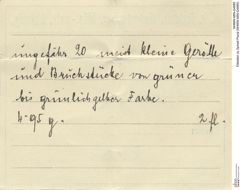 ungefähr 20 meist kleine Gerölle
und Bruchstücke von grüner
bis grünlichgelber Farbe.
4·95 g. 2 fl.